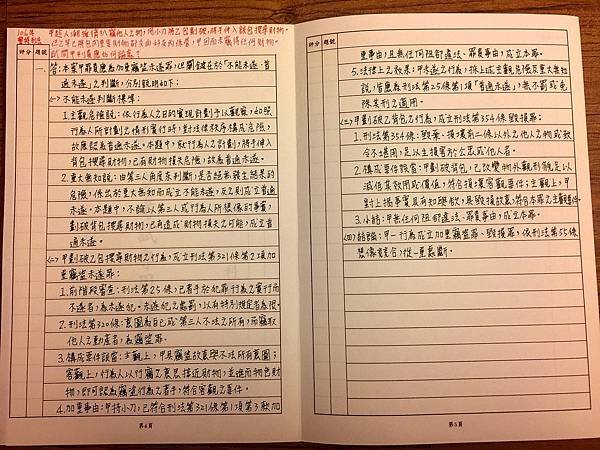 106年
警特刑法
甲趁人潮擁擠趴竊他人之物,用小刀將乙包劃破,將手伸入該包搜尋財物,
但乙早已將包內重要財物都交由好友丙保管,甲因而未竊得任何財物。
試問甲刑責應如何論處?
評分 題號
評分 題號
答:本案甲罪責應為加重竊盜未遂罪,但關鍵在於「不能未遂、普
通未遂」之判斷,分別說明如下:
(一)不能未遂判斷標準:
1.主觀危險說:依行為人之目的實現計劃予以觀察,如照
行為人所計劃之情形實行時,對法律秩序構成危險,
故應認為普通未遂。本題中,就行為人之計劃,將手伸入
背包搜尋財物,已有財物損失危險,故為普通未遂。
2.重大無知說:由第三人角度來判斷是否絕無發生結果的
危險,係出於重大無知而成立不能未遂,反之則成立普通
未遂。本題中,不論以第三人或行為人所想像的事實,
劃破背包搜尋財物,已具造成財物損失之可能,成立普
通未遂。
(二)甲劃破乙包搜尋財物之行為,成立刑法第321條第2項加
重竊盜未遂罪:
1.前階段審查:刑法第25條,已著手於犯罪行為之實行而
不遂者,為未遂犯。未遂犯之處罰,以有特別規定者為限。
2.刑法第320條:意圖為自己或第三人不法之所有,而竊取
他人之動產者,為竊盜罪。
3.構成要件該當:主觀上,甲具竊盜故意與不法所有意圖;
客觀上,行為人以行竊之意思接近財物,並進而物色財
物,即可認為竊盜行為之著手,符合客觀之要件。
4.加重事由:甲持小刀,已符合刑法第321條第1項第3款加
第4頁
重事由,且無任何阻卻違法、罪責事由,成立本罪。
5.法律上之效果:甲未遂之行為,採上述主觀危險及重大無知
說,皆應為刑法第25條第1項「普通未遂」,無不罰或免
除其刑之適用。
(三)甲劃破乙背包之行為,成立刑法第354條毀損罪:
1.刑法第354條:毀棄、損壞前二條以外之他人之物或致
令不堪用,足以生損害於公眾或他人者。
2.構成要件該當:甲劃破背包,已改變物外觀形貌足以
減低其效用或價值,符合損壞客觀要件;主觀上,甲
對上揭事實具有知與欲,具毀損故意,符合本罪之主觀要件。
3.小結:甲無任何阻卻違法、罪責事由,成立本罪。
(四)結論:甲一行為成立加重竊盜罪、毀損罪,依刑法第55條
想像競合,從一重處斷。
第5頁